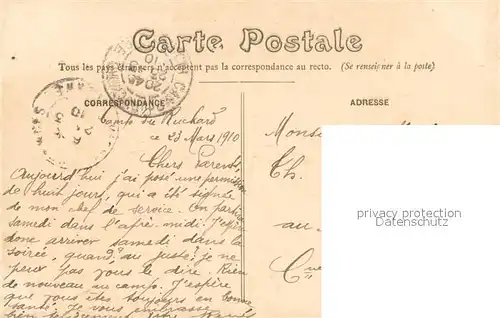 Carte Postale
Tous les pays étrangers n'acceptent pas la correspondance au recto. (Se renseigner à la poste)
CORRESPONDANCE
ADRESSE
Camp du Ruchard
ce 23 Mars 1910
Chers Parents,
Aujourd'hui j'ai posé une permission
de huit jours, qui a été signée
de mon chef de service. On part
samedi dans l'après-midi. J'espère
donc arriver samedi dans la
soirée, quand au juste? je ne
peux pas vous le dire. Rien
de nouveau au camp. J'espère
que vous êtes toujours en bonne
santé. Je vous embrasse
bien
Ch.
au
privacy protection
Datenschutz